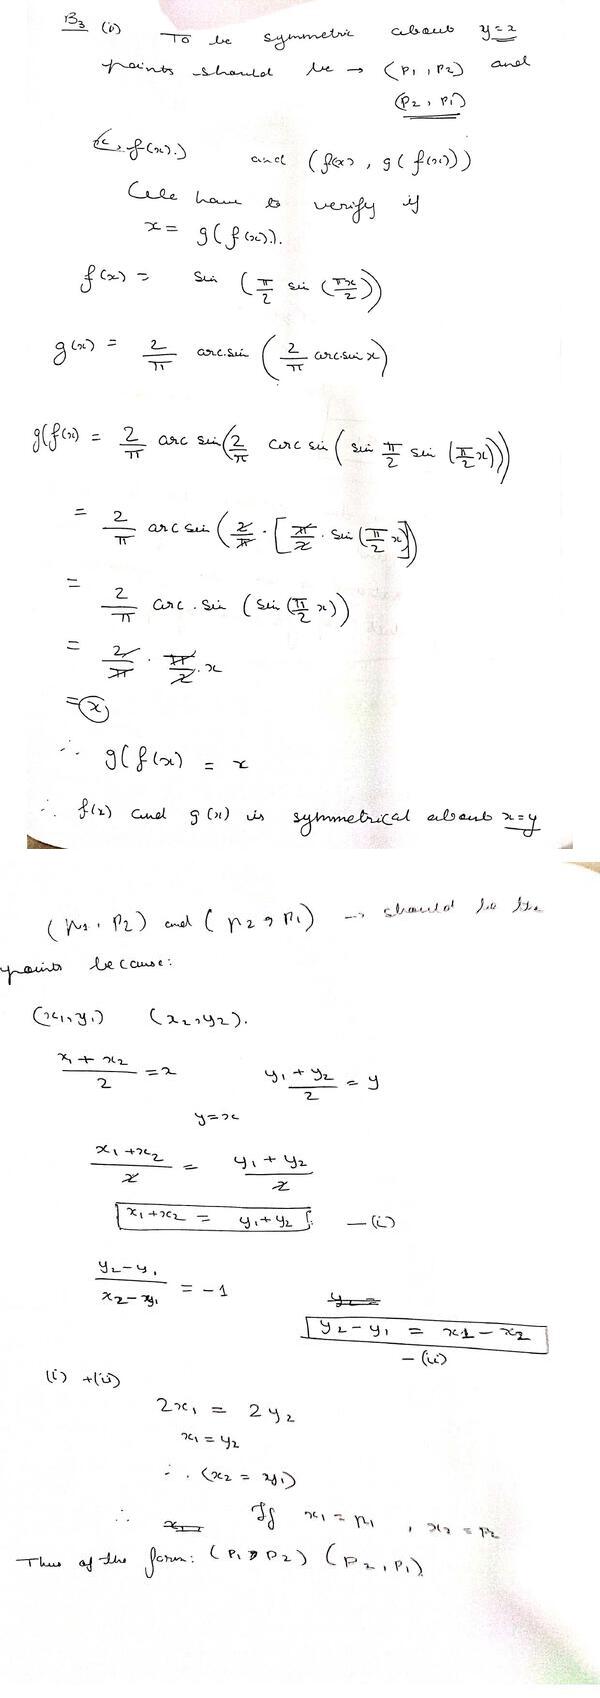 B3 (i) To be symmetric about y=x
points should be → (P1, P2) and
(P2, P1)
(x, f(x).) and (f(x), g(f(x)))
We have to verify if
x = g(f(x)).
f(x) = sin (π/2 sin (πx/2))
g(x) = 2/π arcsin (2/π arcsin x)
g(f(x) = 2/π arc sin(2/π arc sin (sin π/2 sin (π/2 x)))
= 2/π arc sin (2/π · [π/2 · sin (π/2 x])
= 2/π arc. sin (sin (π/2 x))
= 2/π · π/2 · x
= x
∴ g(f(x) = x
∴ f(x) and g(x) is symmetrical about x=y
(P1, P2) and (P2, P1) → should be the
points because:
(x1, y1) (x2, y2).
x1 + x2/2 = x y1 + y2/2 = y
y=x
x1 + x2/2 = y1 + y2/2
x1 + x2 = y1 + y2 — (i)
y2 - y1/x2 - x1 = -1
y2 - y1 = x1 - x2
— (ii)
(i) + (ii)
2x1 = 2y2
x1 = y2
∴ (x2 = y1)
∴ If x1 = P1, x2 = P2
Thus of the form: (P1, P2) (P2, P1)